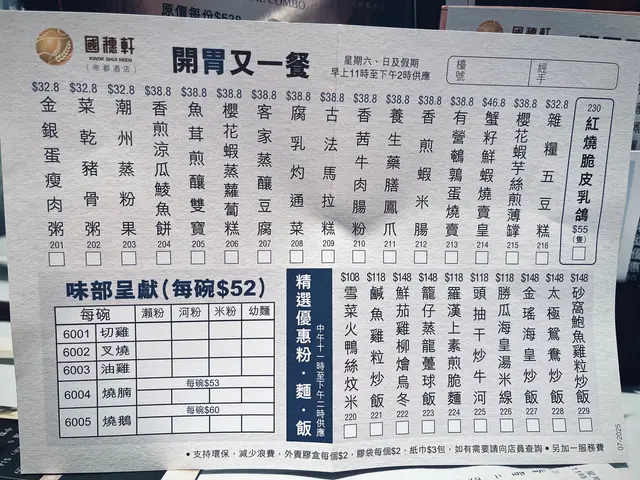 原價每份$538
COMBO
國穗軒
KWOK SHUI HEEN
(帝都酒店)
開胃又一餐
星期六、日及假期
早上11時至下午2時供應
檯號
經手
$32.8 金銀蛋瘦肉粥 201
$32.8 菜乾豬骨粥 202
$32.8 潮州蒸粉果 203
$38.8 香煎涼瓜鯪魚餅 204
$38.8 魚茸煎釀雙寶 205
$38.8 櫻花蝦蒸蘿蔔糕 206
$38.8 客家蒸釀豆腐 207
$38.8 腐乳灼通菜 208
$38.8 古法馬拉糕 209
$38.8 香茜牛肉腸粉 210
$38.8 養生藥膳鳳爪 211
$38.8 香煎蝦米腸 212
$38.8 有營鵪鶉蛋燒賣 213
$46.8 蟹籽鮮蝦燒賣皇 214
$38.8 櫻花蝦芋絲煎薄罉 215
$32.8 雜糧五豆糕 216
230 紅燒脆皮乳鴿 $55 (隻)
味部呈獻(每碗$52)
每碗 瀨粉 河粉 米粉 幼麵
6001 切雞
6002 叉燒
6003 油雞
6004 燒腩 每碗$53
6005 燒鵝 每碗$60
精選優惠粉．麵．飯
中午十一時至下午二時供應
$108 雪菜火鴨絲炆米 220
$118 鹹魚雞粒炒飯 221
$148 鮮茄雞柳燴烏冬 222
$148 籠仔蒸龍躉球飯 223
$128 羅漢上素煎脆麵 224
$118 頭抽干炒牛河 225
$118 勝瓜海皇湯米線 226
$148 金瑤海皇炒飯 227
$148 太極鴛鴦炒飯 228
$148 砂窩鮑魚雞粒炒飯 229
•支持環保，減少浪費，外賣膠盒每個$2，膠袋每個$2，紙巾$3包，如有需要請向店員查詢 •另加一服務費
07-2025